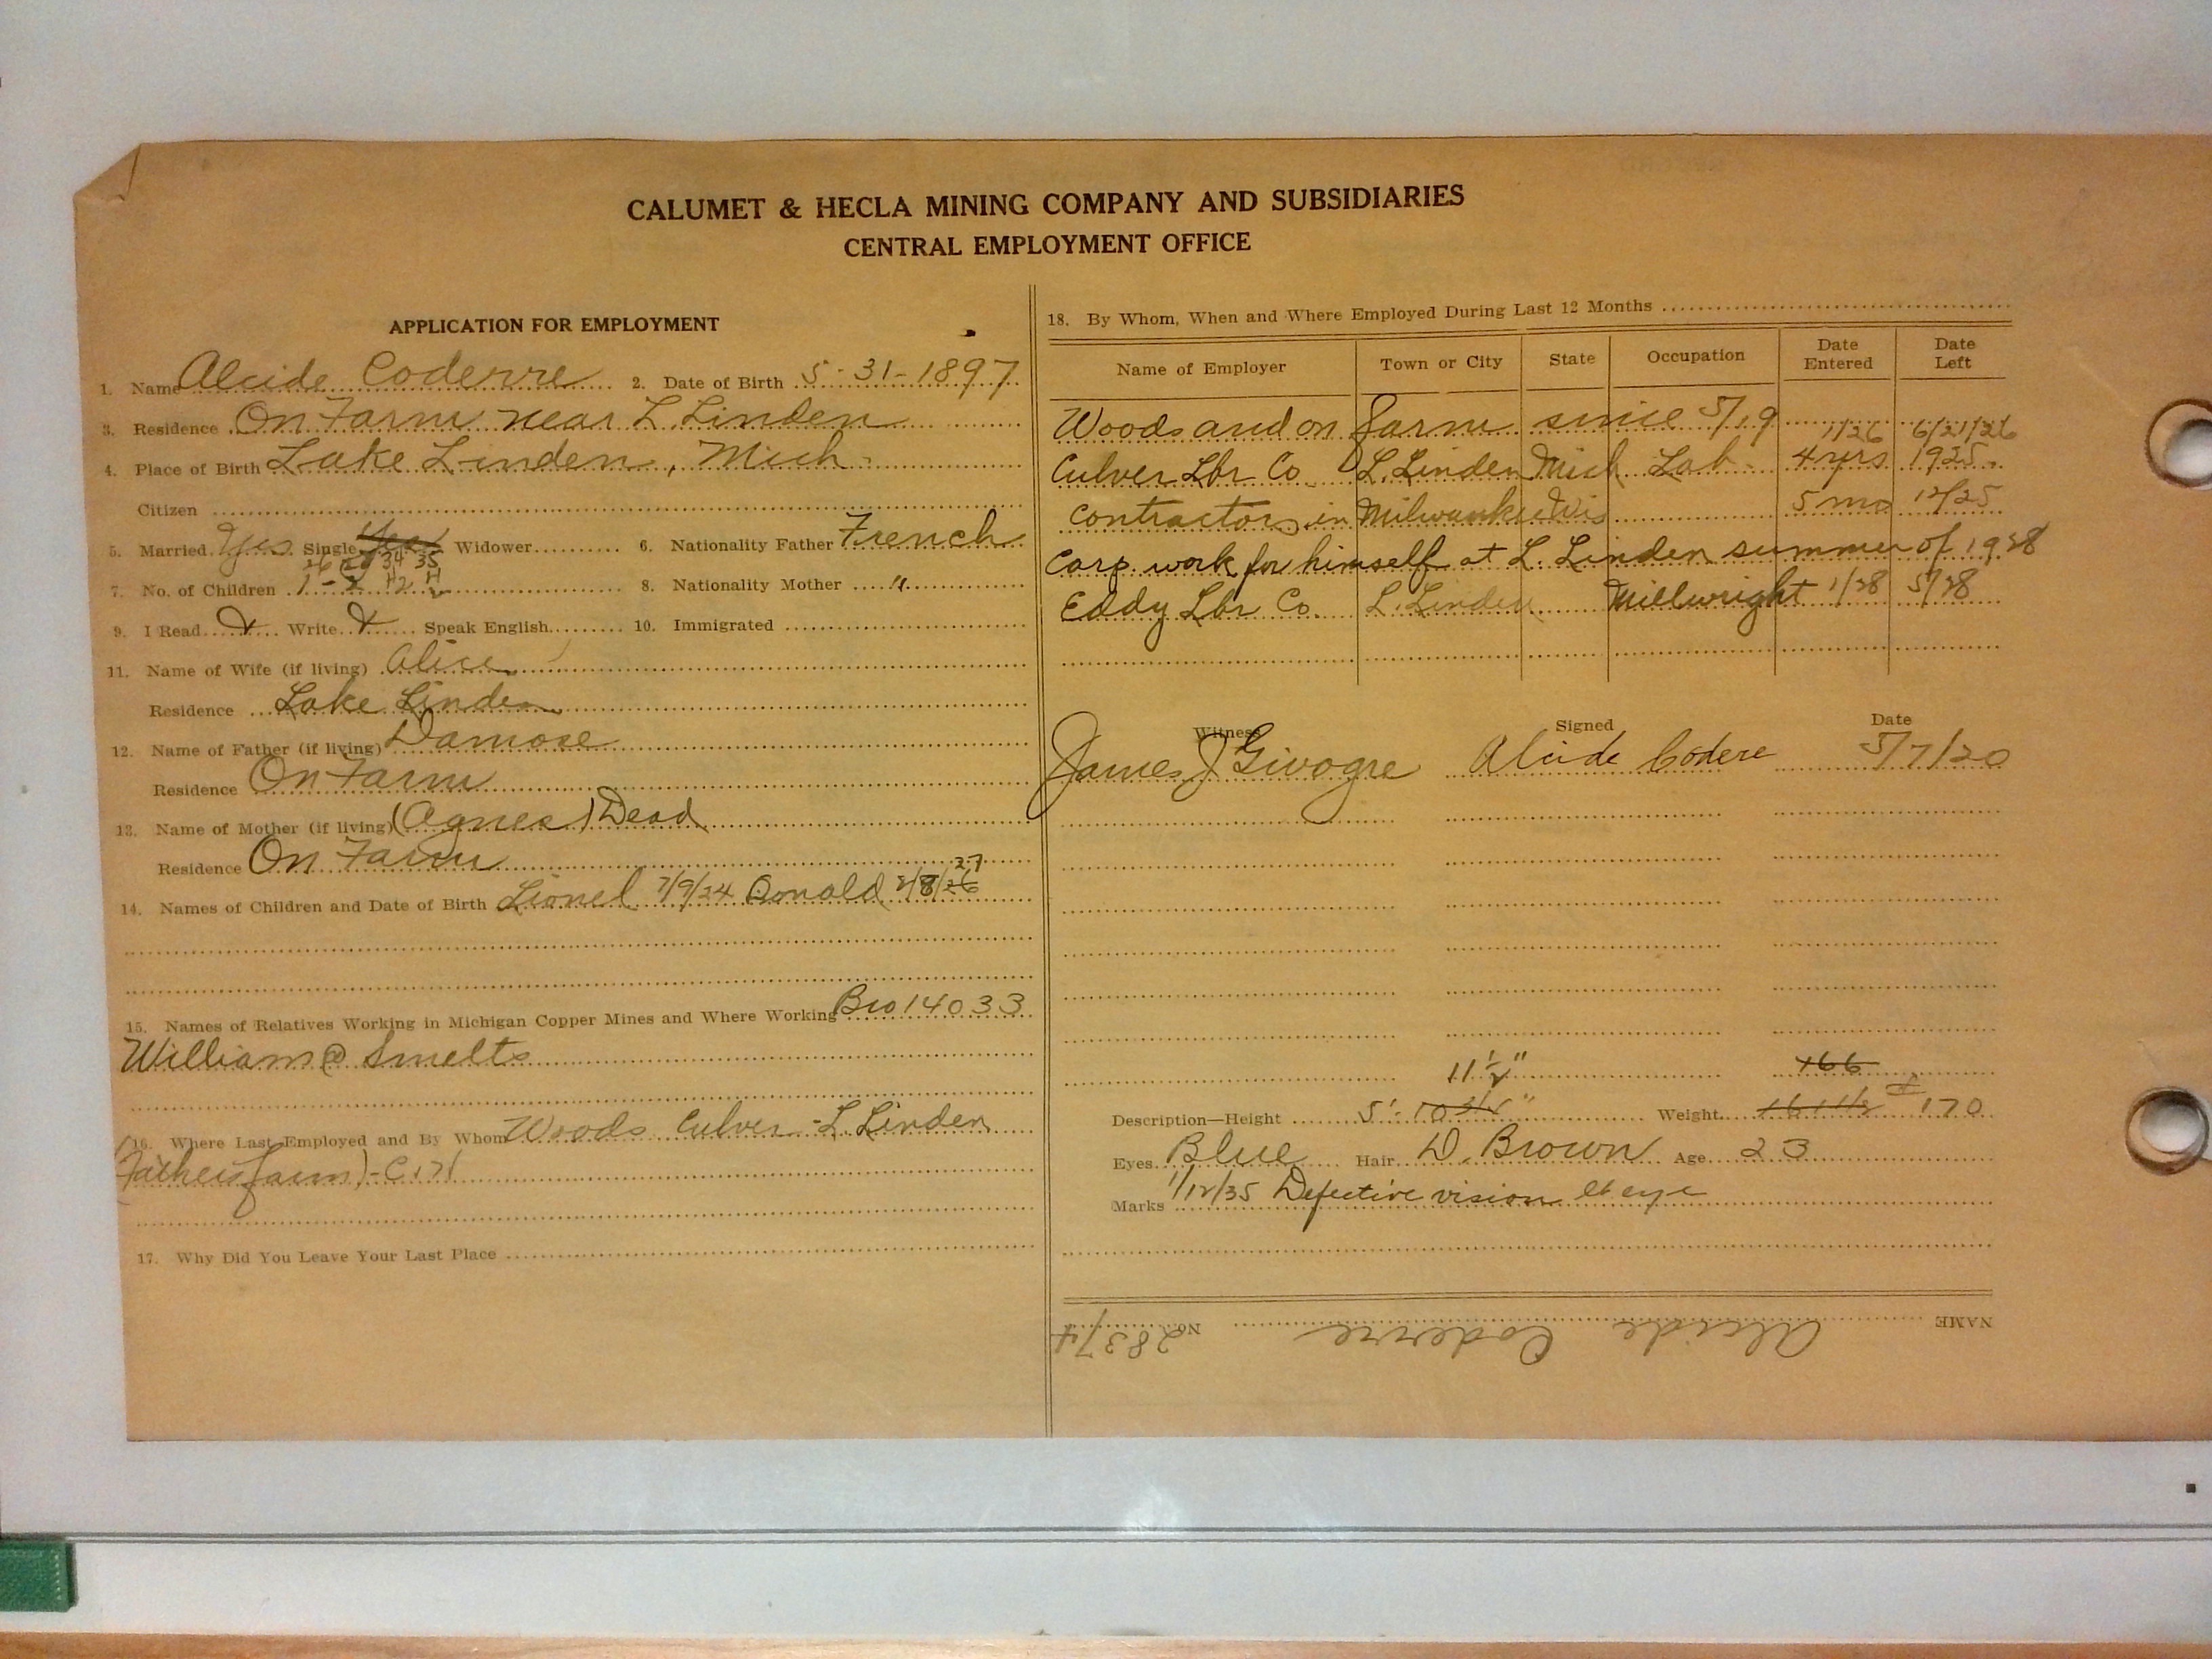 CALUMET & HECLA MINING COMPANY AND SUBSIDIARIES
CENTRAL EMPLOYMENT OFFICE
APPLICATION FOR EMPLOYMENT
1. Name Alcide Coderre 2. Date of Birth 5-31-1897
3. Residence On Farm near L. Linden
4. Place of Birth Lake Linden, Mich.
Citizen
5. Married Yes Single Yes Widower 6. Nationality Father French
34 35
7. No. of Children 1-2 H2 8. Nationality Mother "
9. I Read X Write X Speak English 10. Immigrated
11. Name of Wife (if living) Alice
Residence Lake Linden
12. Name of Father (if living) Damose
Residence On Farm
13. Name of Mother (if living) (Agnes) Dead
Residence On Farm
27
14. Names of Children and Date of Birth Lionel 7/9/24 Donald 2/8/26
15. Names of Relatives Working in Michigan Copper Mines and Where Working Bro 14033
William @ Smelts
16. Where Last Employed and By Whom Woods Culver - L Linden
(Fathers farm) - C171
17. Why Did You Leave Your Last Place
18. By Whom, When and Where Employed During Last 12 Months
Name of Employer Town or City State Occupation Date Entered Date Left
Woods and on farm since 5/19
1/26 6/21/26
Culver Lbr Co L. Linden Mich Lab. 4 yrs 1925.
Contractor in Milwaukee Wis 5 mo 12/25
Carp. work for himself at L. Linden summer of 1928
Eddy Lbr Co. L. Linden Millwright 1/28 5/28
Witness Signed Date
James J Givogre Alcide Codere 5/7/20
11 1/2" 166
Description—Height 5'-10 3/4" Weight 161 1/2 170
Eyes Blue Hair D. Brown Age 23
Marks 1/12/35 Defective vision lt eye
NAME Alcide Coderre No. 28374